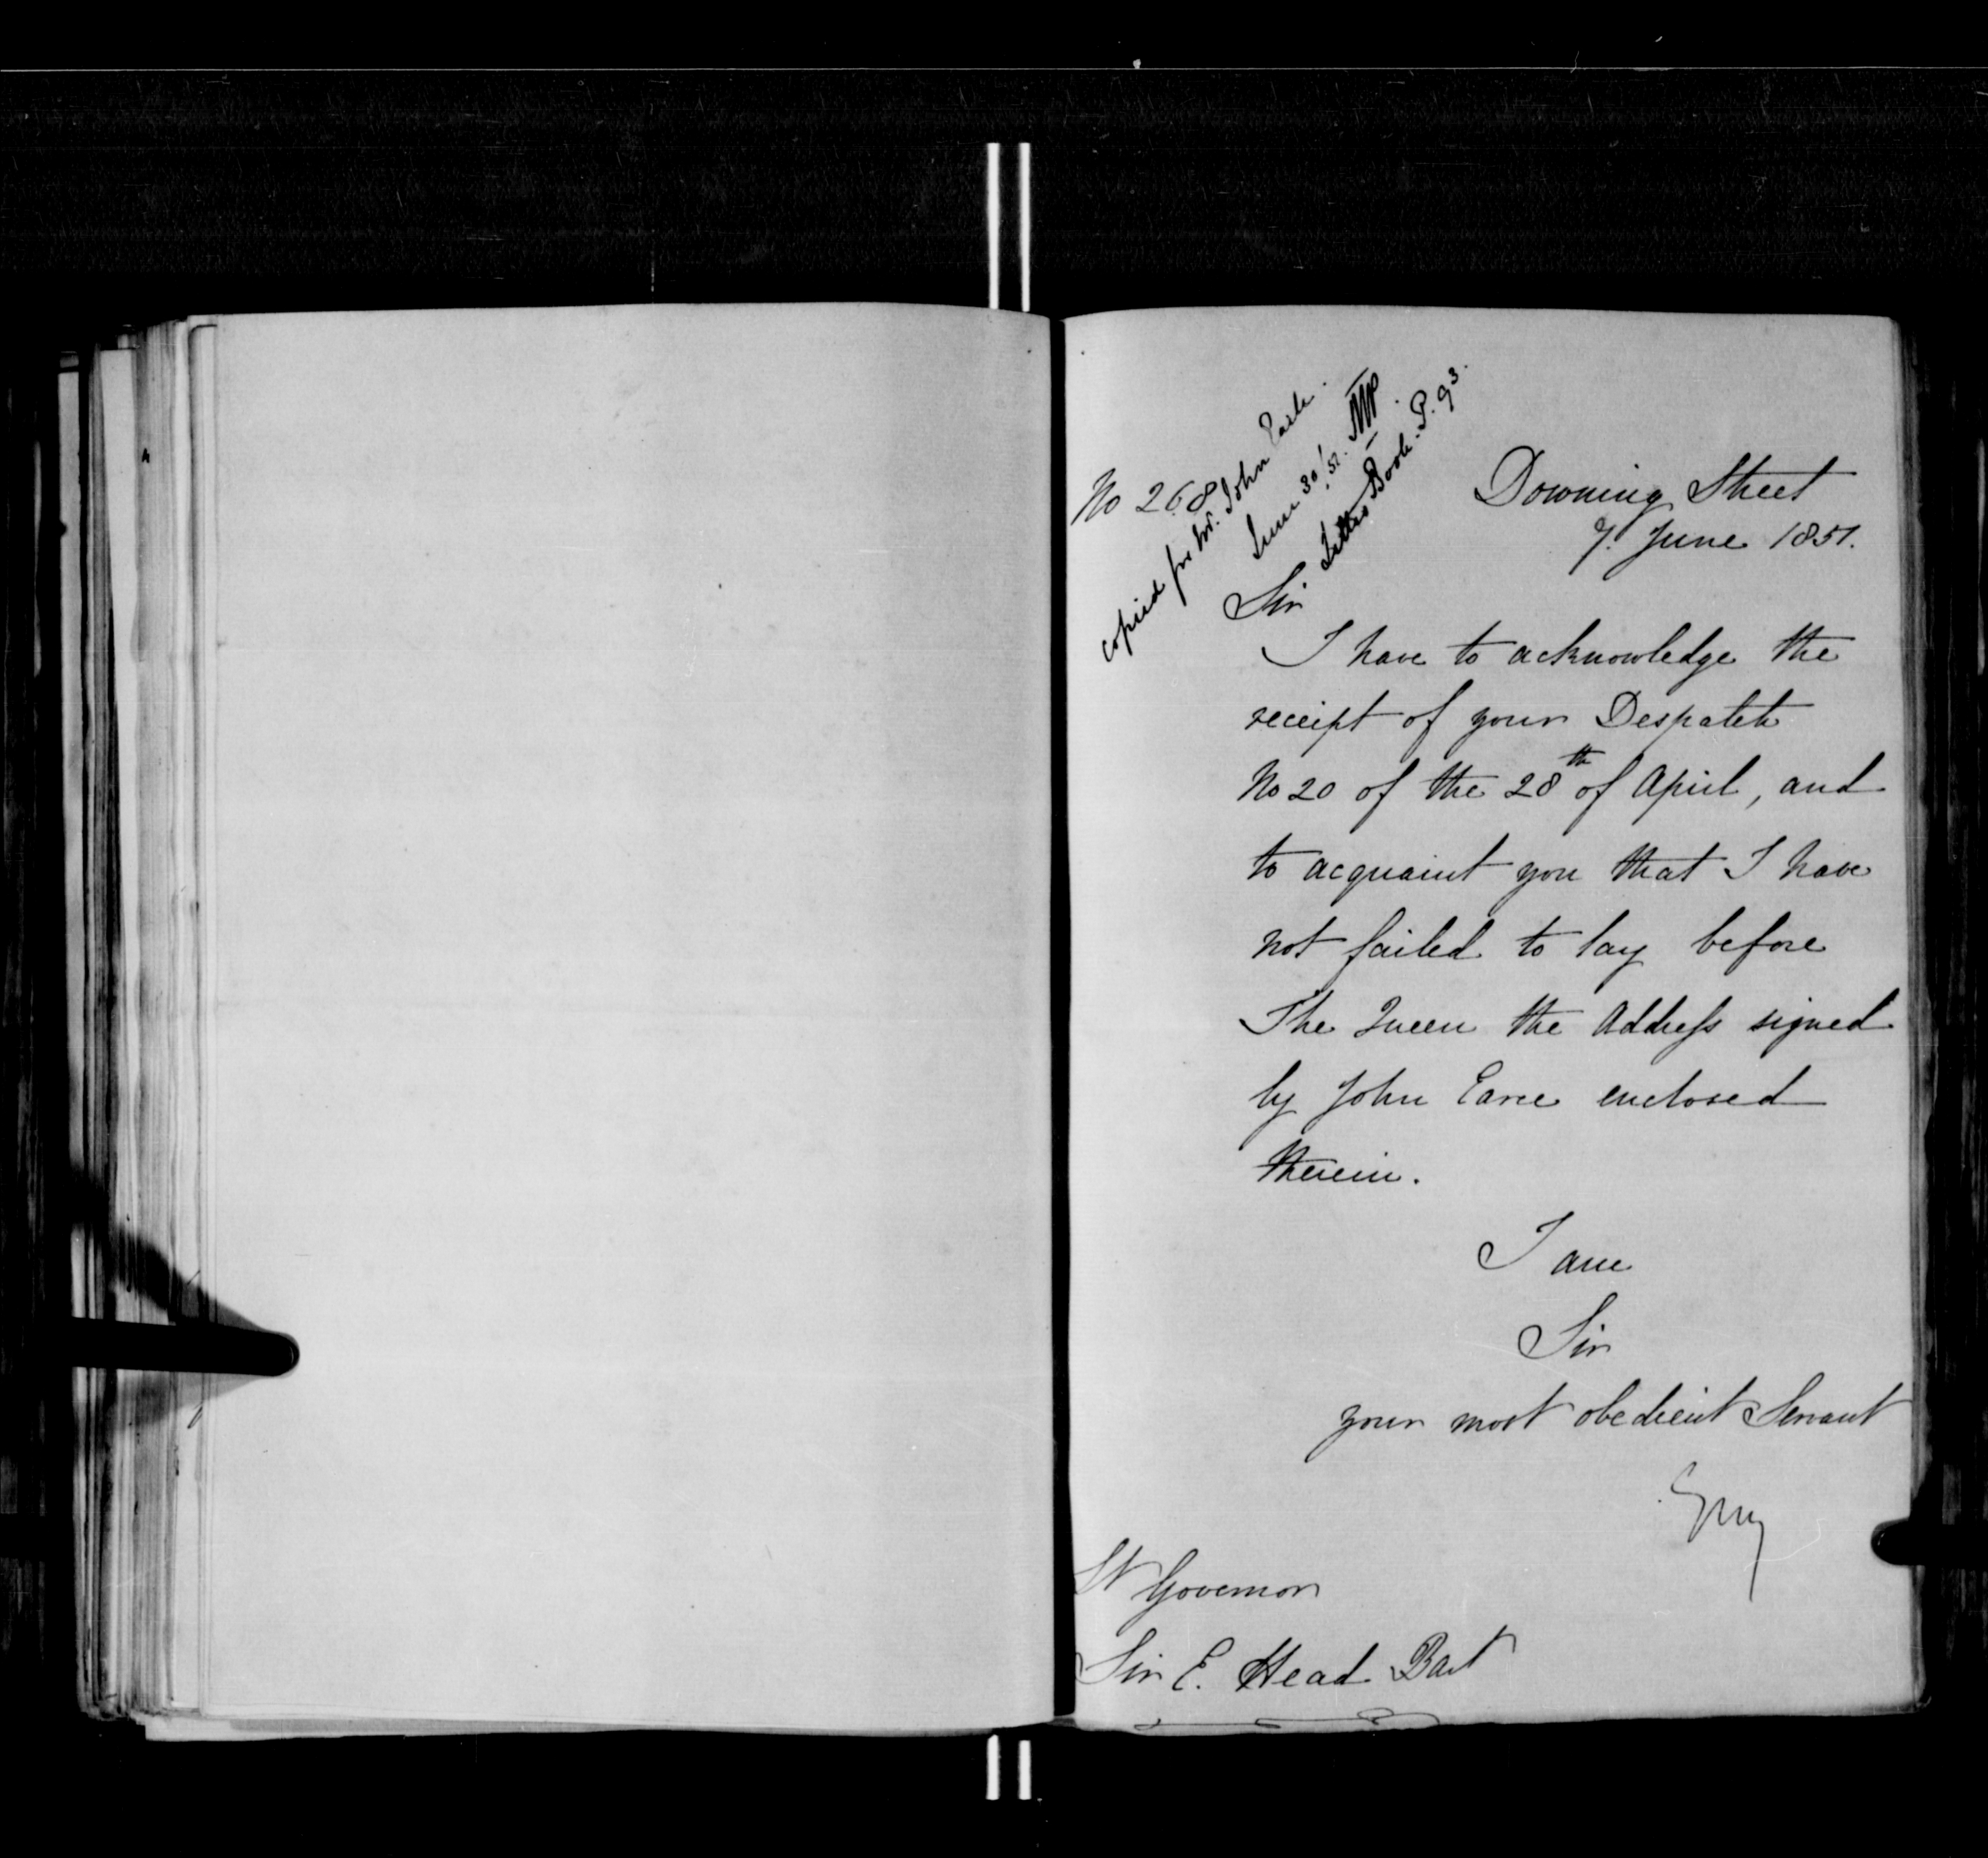 No 268
copied for Mr. John Earle.
June 30/51.
Letter Book. P. 93.
Downing Street
7. June 1851.
Sir
I have to acknowledge the
receipt of your Despatch
No 20 of the 28th of April, and
to acquaint you that I have
not failed to lay before
The Queen the Address signed
by John Earle enclosed
therein.
I am
Sir
your most obedient Servant
Grey
Lt Governor
Sir E. Head Bart